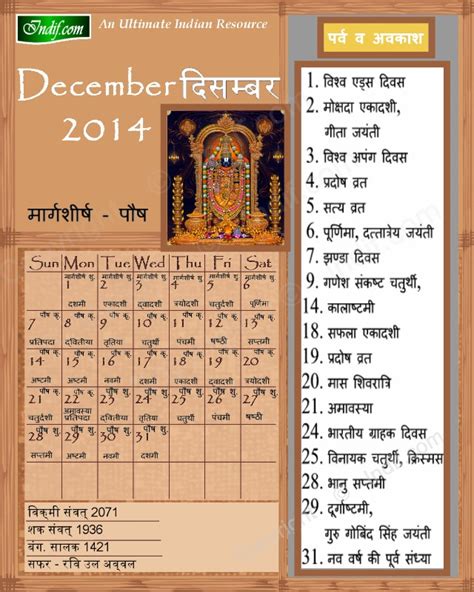 Indif.com
An Ultimate Indian Resource
December दिसम्बर
2014
मार्गशीर्ष - पौष
Sun Mon Tue Wed Thu Fri Sat
मार्गशीर्ष शु. मार्गशीर्ष शु. मार्गशीर्ष शु. मार्गशीर्ष शु. मार्गशीर्ष शु. मार्गशीर्ष शु.
1 2 3 4 5 6
दशमी एकादशी द्वादशी त्रयोदशी चतुर्दशी पूर्णिमा
पौष कृ. पौष कृ. पौष कृ. पौष कृ. पौष कृ. पौष कृ. पौष कृ.
7 8 9 10 11 12 13
प्रतिपदा द्वितीया तृतिया चतुर्थी पंचमी षष्ठी सप्तमी
14 15 16 17 18 19 20
अष्टमी अष्टमी नवमी दशमी एकादशी द्वादशी
21 22 23 24 25 26 27
चतुर्दशी प्रतिपदा तृतीया चतुर्थी पंचमी षष्ठी
28 29 30 31
सप्तमी अष्टमी नवमी दशमी
विक्रमी संवत् 2071
शक संवत् 1936
बंग. सालक 1421
सफर - रवि उल अव्वल
पर्व व अवकाश
1. विश्व एड्स दिवस
2. मोक्षदा एकादशी,
गीता जयंती
3. विश्व अपंग दिवस
4. प्रदोष व्रत
5. सत्य व्रत
6. पूर्णिमा, दत्तात्रेय जयंती
7. झण्डा दिवस
9. गणेश संकष्ट चतुर्थी,
14. कालाष्टमी
18. सफला एकादशी
19. प्रदोष व्रत
20. मास शिवरात्रि
21. अमावस्या
24. भारतीय ग्राहक दिवस
25. विनायक चतुर्थी, क्रिसमस
28. भानु सप्तमी
29. दुर्गाष्टमी,
गुरु गोबिंद सिंह जयंती
31. नव वर्ष की पूर्व संध्या